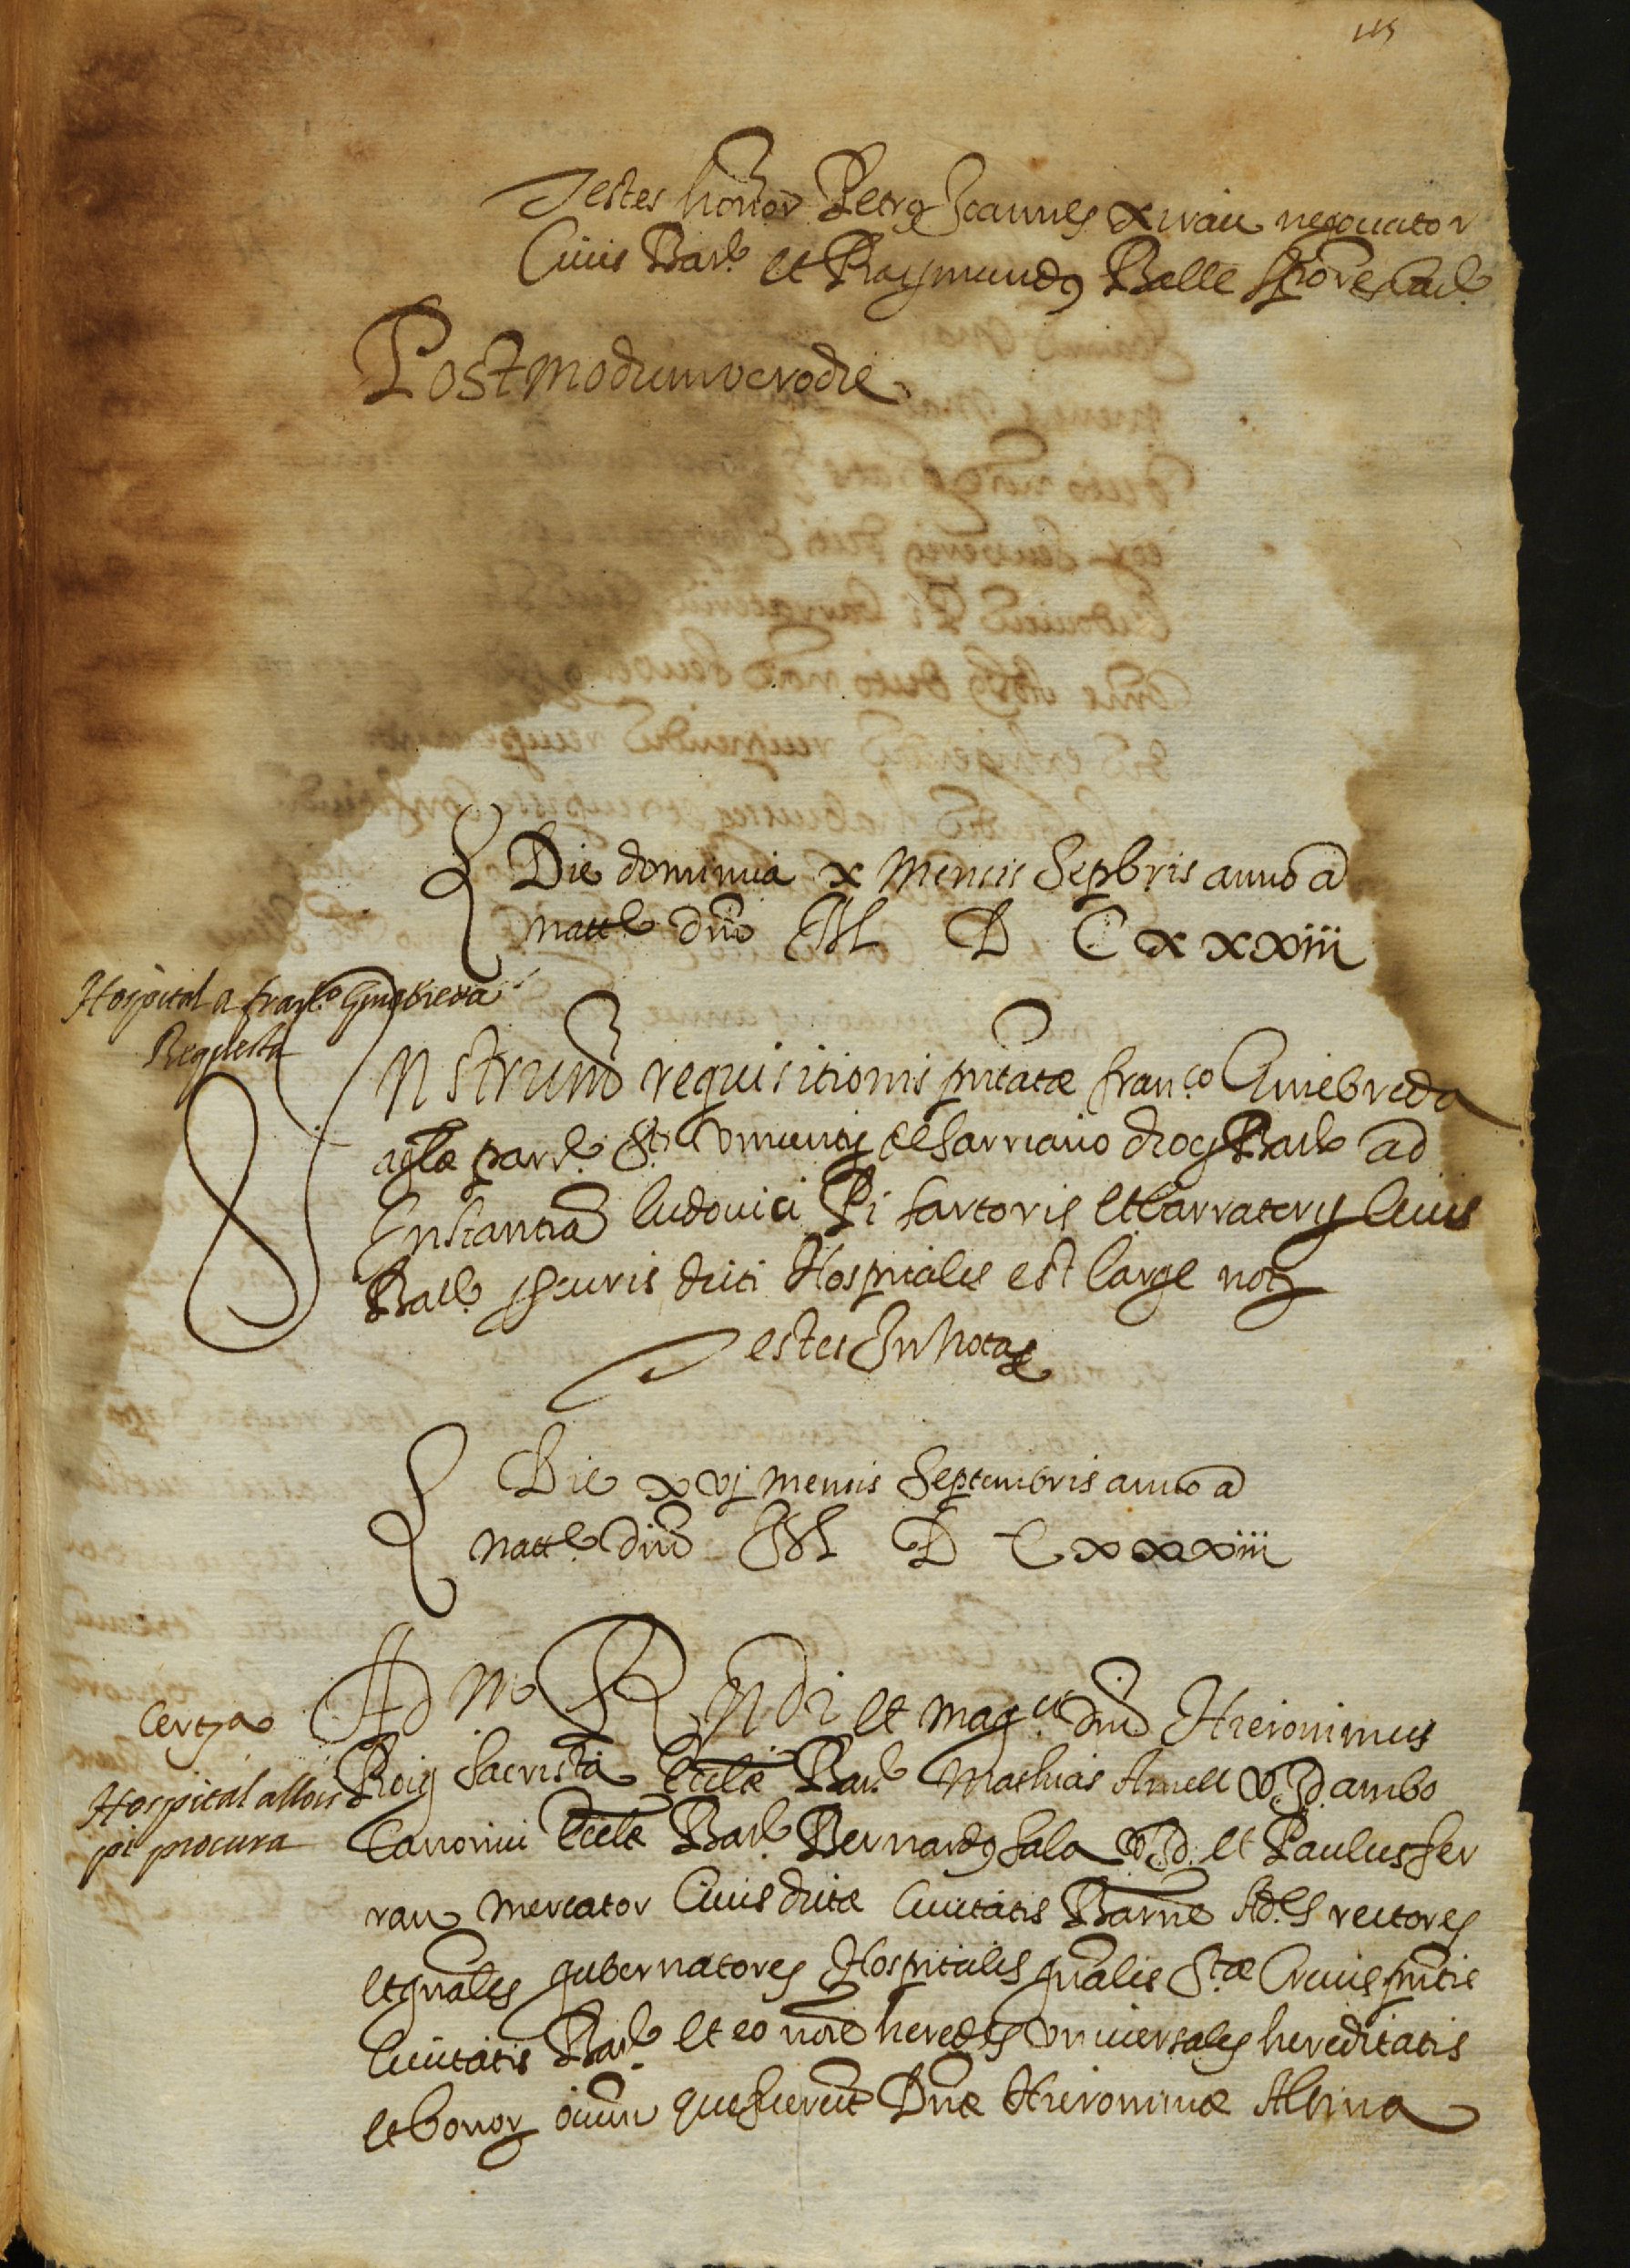 115
Testes honor Petrus Joannes Xirau negociator
Civis Bar.e et Raymundus Balle scriptor Bar.e
Postmodum vero die
Die dominica x mensis Sepbris anno a
natt.e dni M D C xxxiii
Hospital a fran.co Ginebreda
Requesta
Instrum requisitionis pntatæ fran.co Ginebreda
agla parr.e St.i Vincentij de Sarriano diocs Bar.e ad
Instantia Ludovici Pi sartoris et Civis
Bar.e dicti Hospitalis est large not
Testes In nota
Die xvj mensis Septembris anno a
natt.e dni M D C xxxiii
Certja
Hospital a llois
pi procura
Adm Rndi et mag.ci dni Hieronimus
Roig Sacrista Eccle Bar.e Mathias Amell V.J.d. ambo
Canonici Eccle Bar.e Bernardus Sala V.J.d. et Paulus Fer
ran mercator Civis dictæ Civitatis Barne Ad.es rectores
et gnales gubernatores Hospitalis gnalis St.æ Crucis pntis
Civitatis Bar.e et eo noie heredes universales hereditatis
et bonor oium que fuerunt Dnæ Hieronimæ Alsina